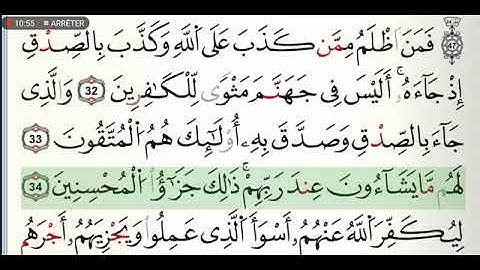 10:55 ■ ARRÊTER
فَمَنْ أَظْلَمُ مِمَّن كَذَبَ عَلَى ٱللَّهِ وَكَذَّبَ بِٱلصِّدْقِ
47
إِذْ جَآءَهُۥٓ ۚ أَلَيْسَ فِى جَهَنَّمَ مَثْوًى لِّلْكَٰفِرِينَ 32 وَٱلَّذِى
جَآءَ بِٱلصِّدْقِ وَصَدَّقَ بِهِۦٓ أُو۟لَٰٓئِكَ هُمُ ٱلْمُتَّقُونَ 33
لَهُم مَّا يَشَآءُونَ عِندَ رَبِّهِمْ ۚ ذَٰلِكَ جَزَآؤُا۟ ٱلْمُحْسِنِينَ 34
لِيُكَفِّرَ ٱللَّهُ عَنْهُمْ أَسْوَأَ ٱلَّذِى عَمِلُوا۟ وَيَجْزِيَهُمْ أَجْرَهُم